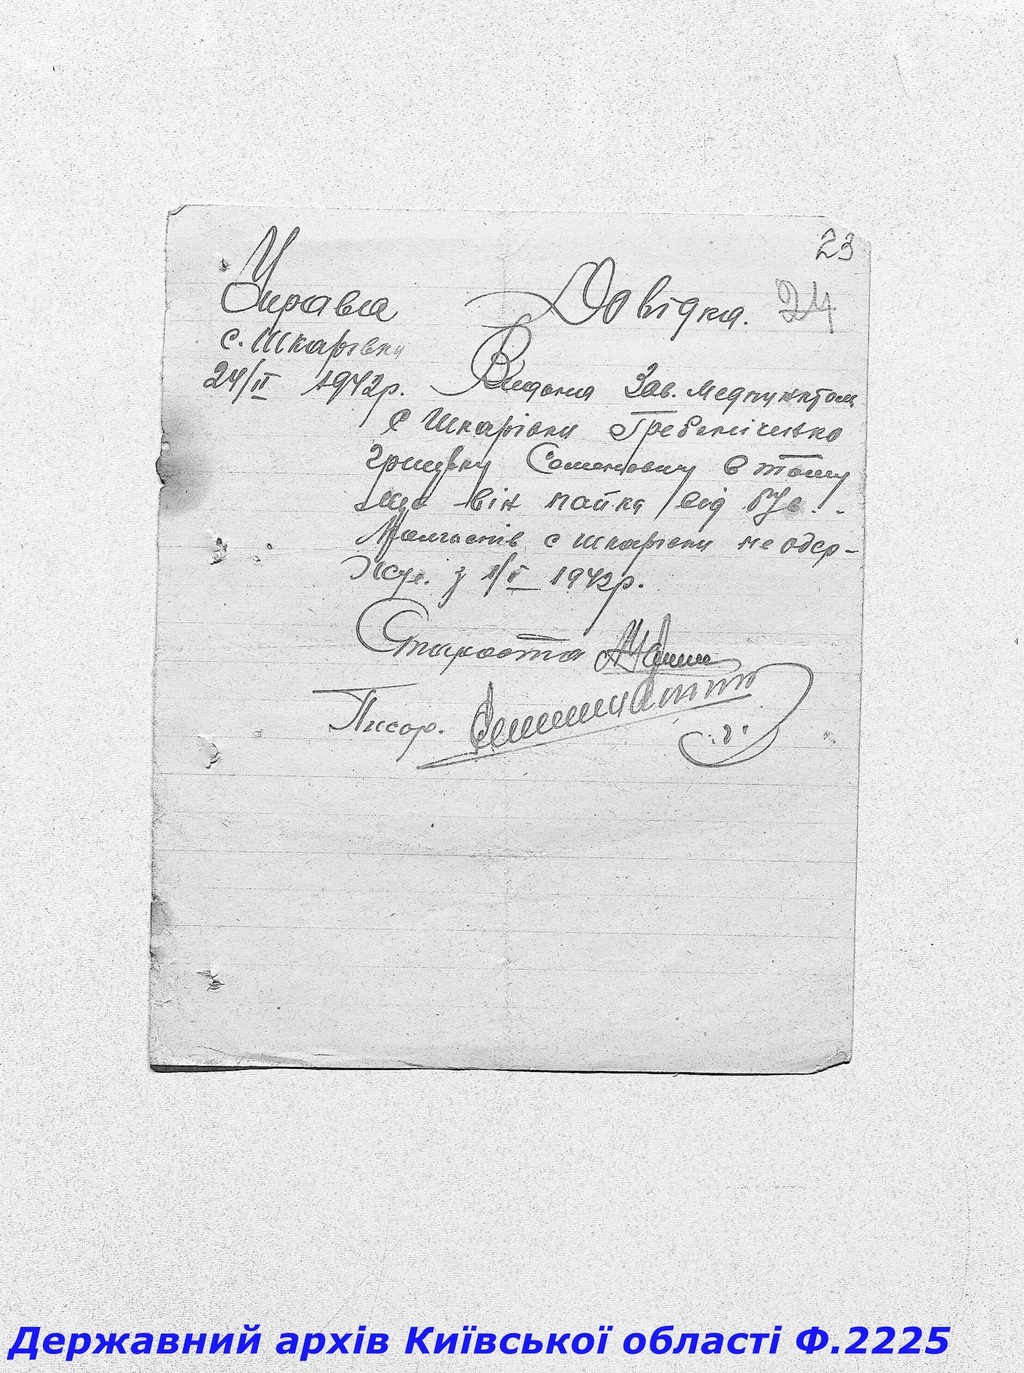 23
Управа Довідка. 24
с. Шкарівки
24/II 1942р. Видана Зав. Медпунктом
с Шкарівки Гребеніченко
Грицьку Семеновичу в тому
що він пайка від
с шкарівки не одер-
жує. з 1942р.
Староста
Писар.
Державний архів Київської області Ф.2225